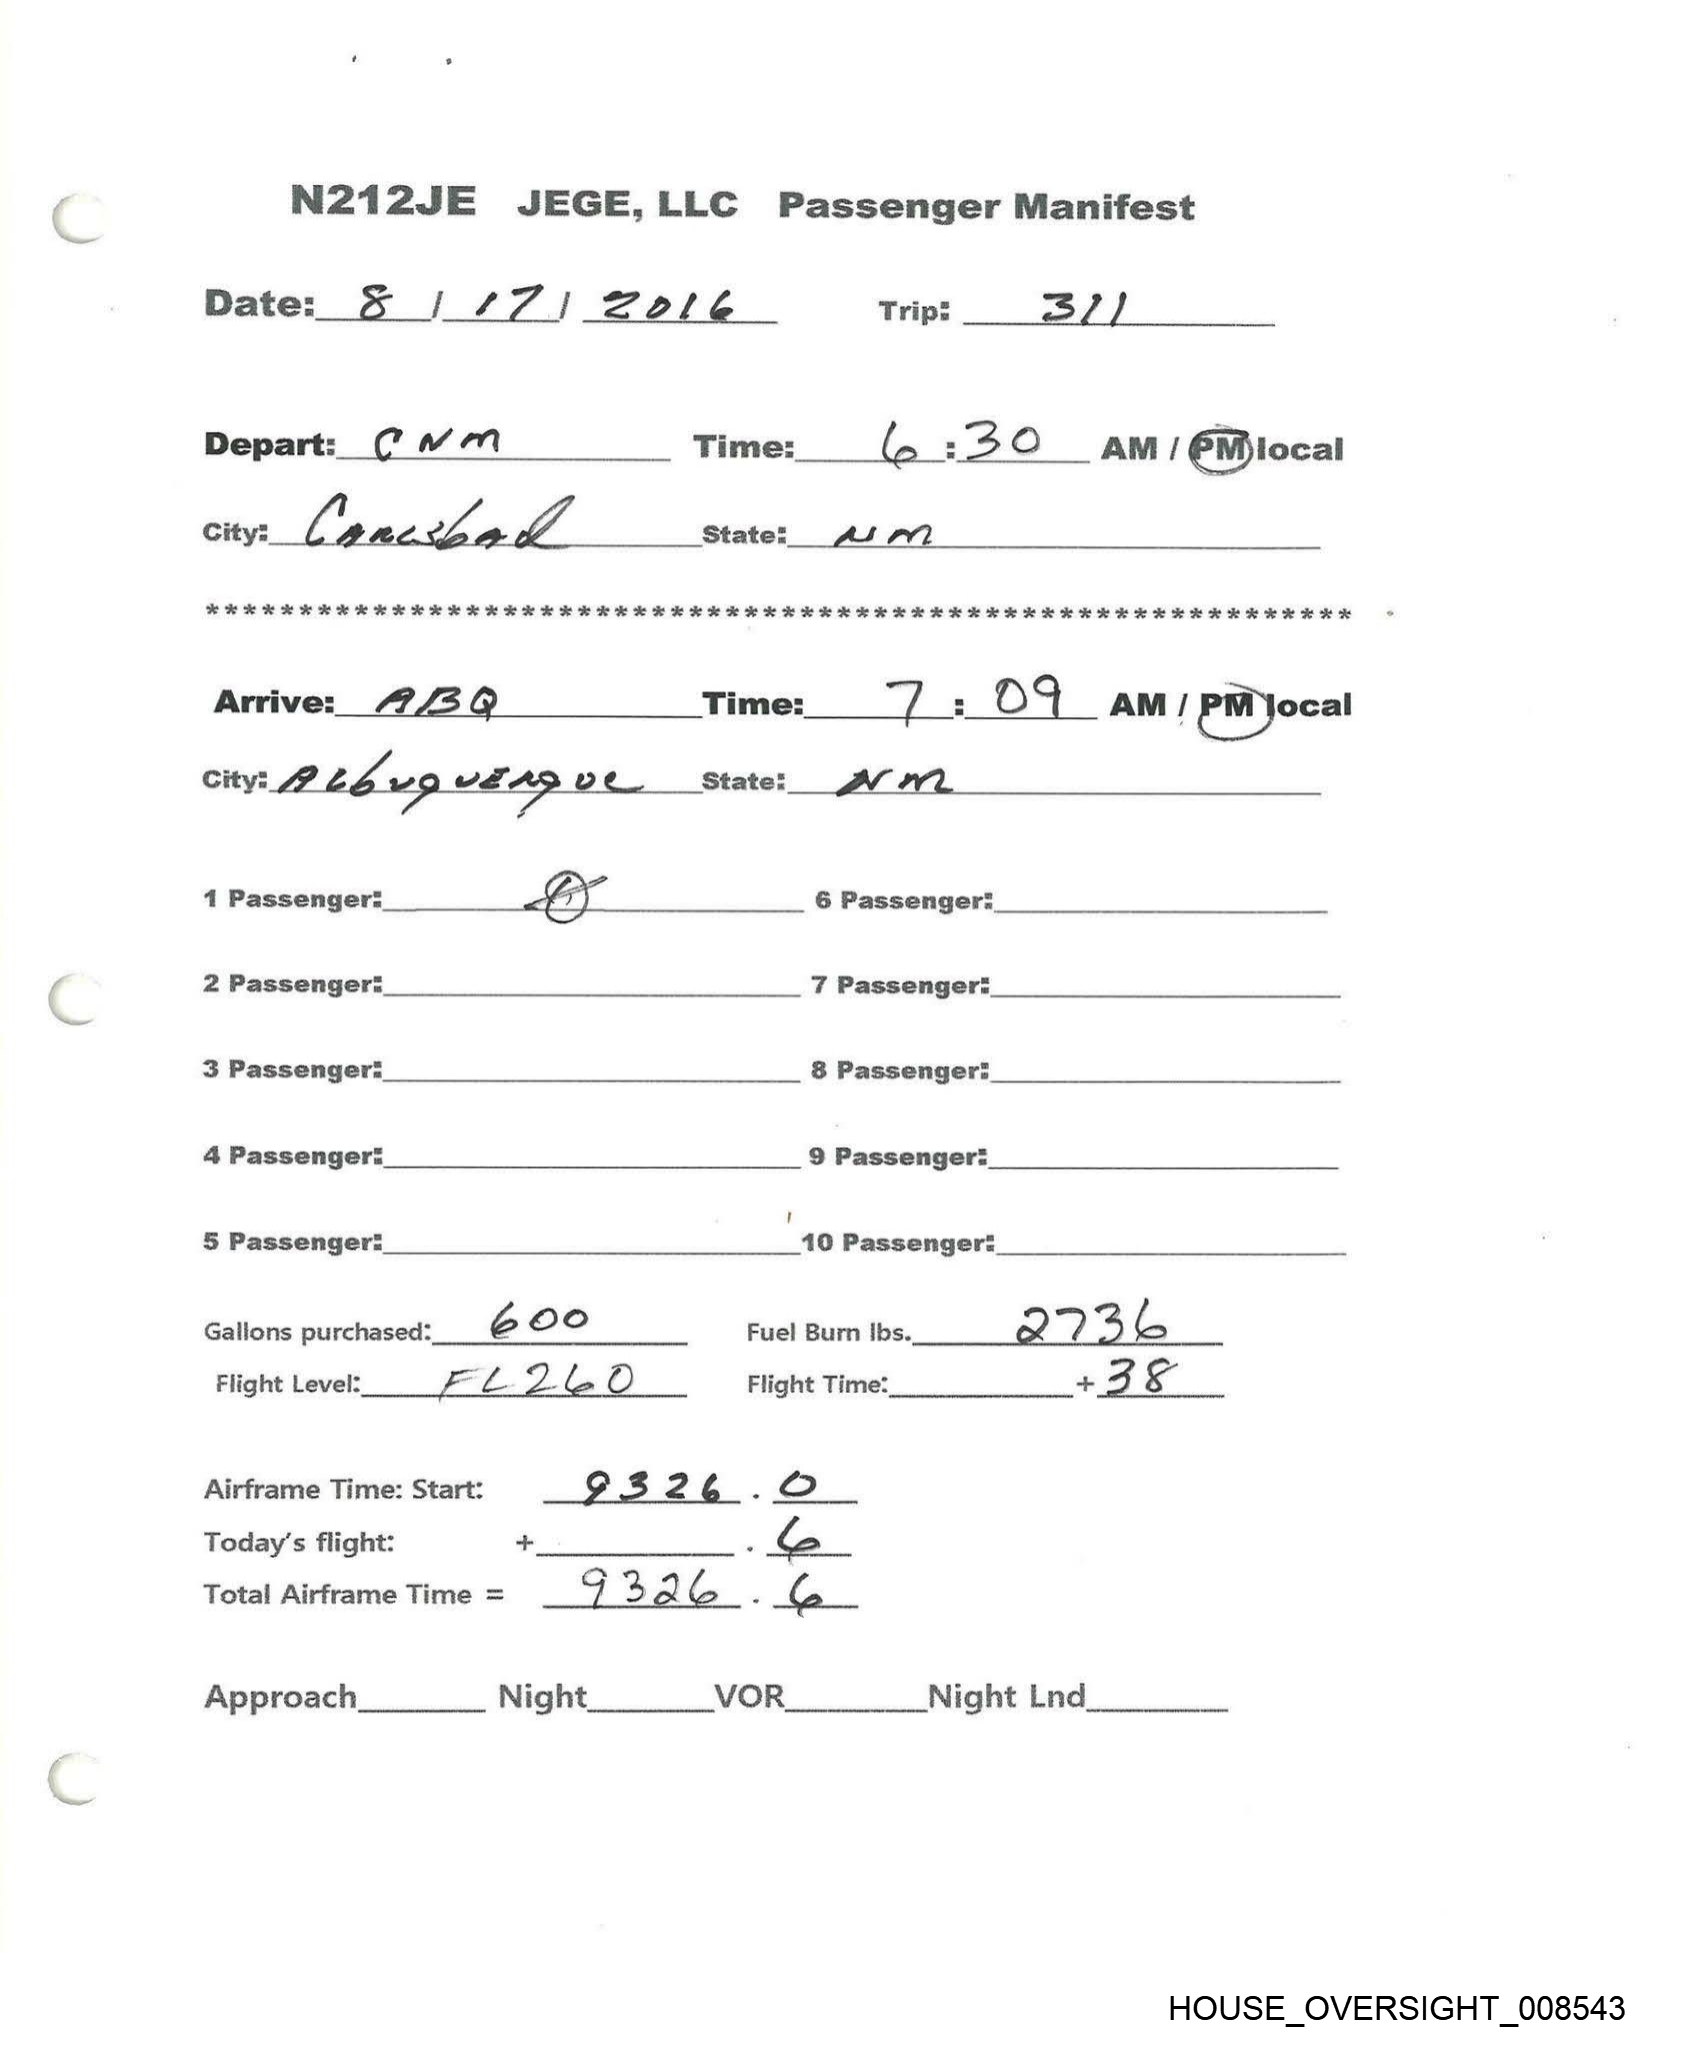 N212JE JEGE, LLC Passenger Manifest
Date: 8 / 17 / 2016 Trip: 311
Depart: CNM Time: 6:30 AM / PM local
City: Carlsbad State: NM
*************************************************************
Arrive: ABQ Time: 7:09 AM / PM local
City: Albuquerque State: NM
1 Passenger: 6 Passenger:
2 Passenger: 7 Passenger:
3 Passenger: 8 Passenger:
4 Passenger: 9 Passenger:
5 Passenger: 10 Passenger:
Gallons purchased: 600 Fuel Burn lbs. 2736
Flight Level: FL260 Flight Time: + 38
Airframe Time: Start: 9326 . 0
Today's flight: + . 6
Total Airframe Time = 9326 . 6
Approach Night VOR Night Lnd
HOUSE_OVERSIGHT_008543